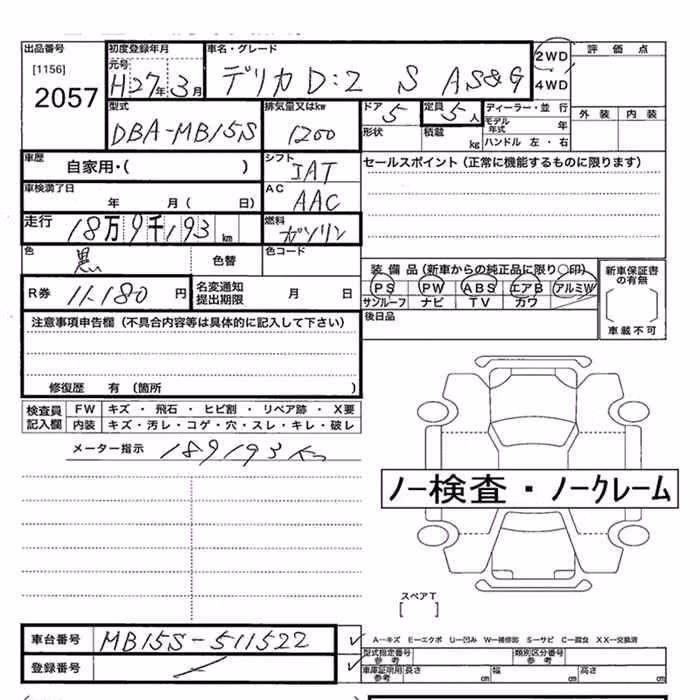 出品番号 初度登録年月 車名・グレード 評価点
[1156] 元号 2WD
2057 H27年3月 デリカD:2 S AS&G 4WD
型式 排気量又はkw ドア 定員 ディーラー・並行 外装 内装
DBA-MB15S 1200 5 5人 モデル年式 年
形状 積載 kg ハンドル 左・右
車歴 自家用・( ) シフト IAT セールスポイント(正常に機能するものに限ります)
車検満了日 年 月( 日) AC AAC
走行 18万9千193km 燃料 ガソリン
色 黒 色替 色コード
装備品(新車からの純正品に限り〇印) 新車保証書の有無
R券 11.180円 名変通知提出期限 月 日 PS PW ABS エアB アルミW
サンルーフ ナビ TV カワ
注意事項申告欄(不具合内容等は具体的に記入して下さい) 後日品 車載不可
修復歴 有(箇所 )
検査員記入欄 FW キズ・飛石・ヒビ割・リペア跡・X要
内装 キズ・汚レ・コゲ・穴・スレ・キレ・破レ
メーター指示 189193Km
ノー検査・ノークレーム
スペアT
[ ]
車台番号 MB15S-511522 A-キズ E-エクボ U-凹み W-補修跡 S-サビ C-腐食 XX-交換済
型式指定番号 参考 類別区分番号 参考
登録番号 車庫証明用 参考 長さ cm 幅 cm 高さ cm